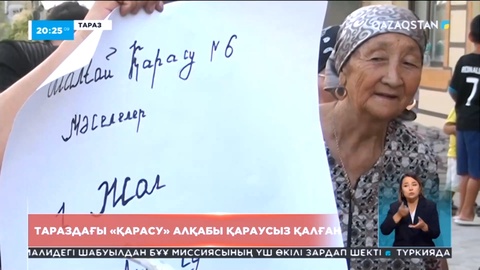 20:25
ТАРАЗ
QAZAQSTAN
Малтай Қарасу №6
Мәселелер
1 Жол
RONALDO
ТАРАЗДАҒЫ «ҚАРАСУ» АЛҚАБЫ ҚАРАУСЫЗ ҚАЛҒАН
МАЛИДЕГІ ШАБУЫЛДАН БҰҰ МИССИЯСЫНЫҢ ҮШ ӨКІЛІ ЗАРДАП ШЕКТІ ТҮРКИЯДА